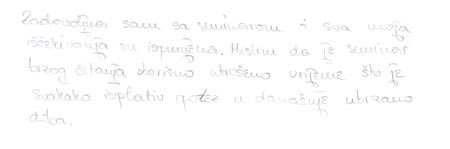 Zadovoljna sam sa seminarom i sva moja
iščekivanja su ispunjena. Mislim da je seminar
brzog čitanja korisno utrošeno vrijeme što je
svakako isplativ potez u današnje ubrzano
doba.